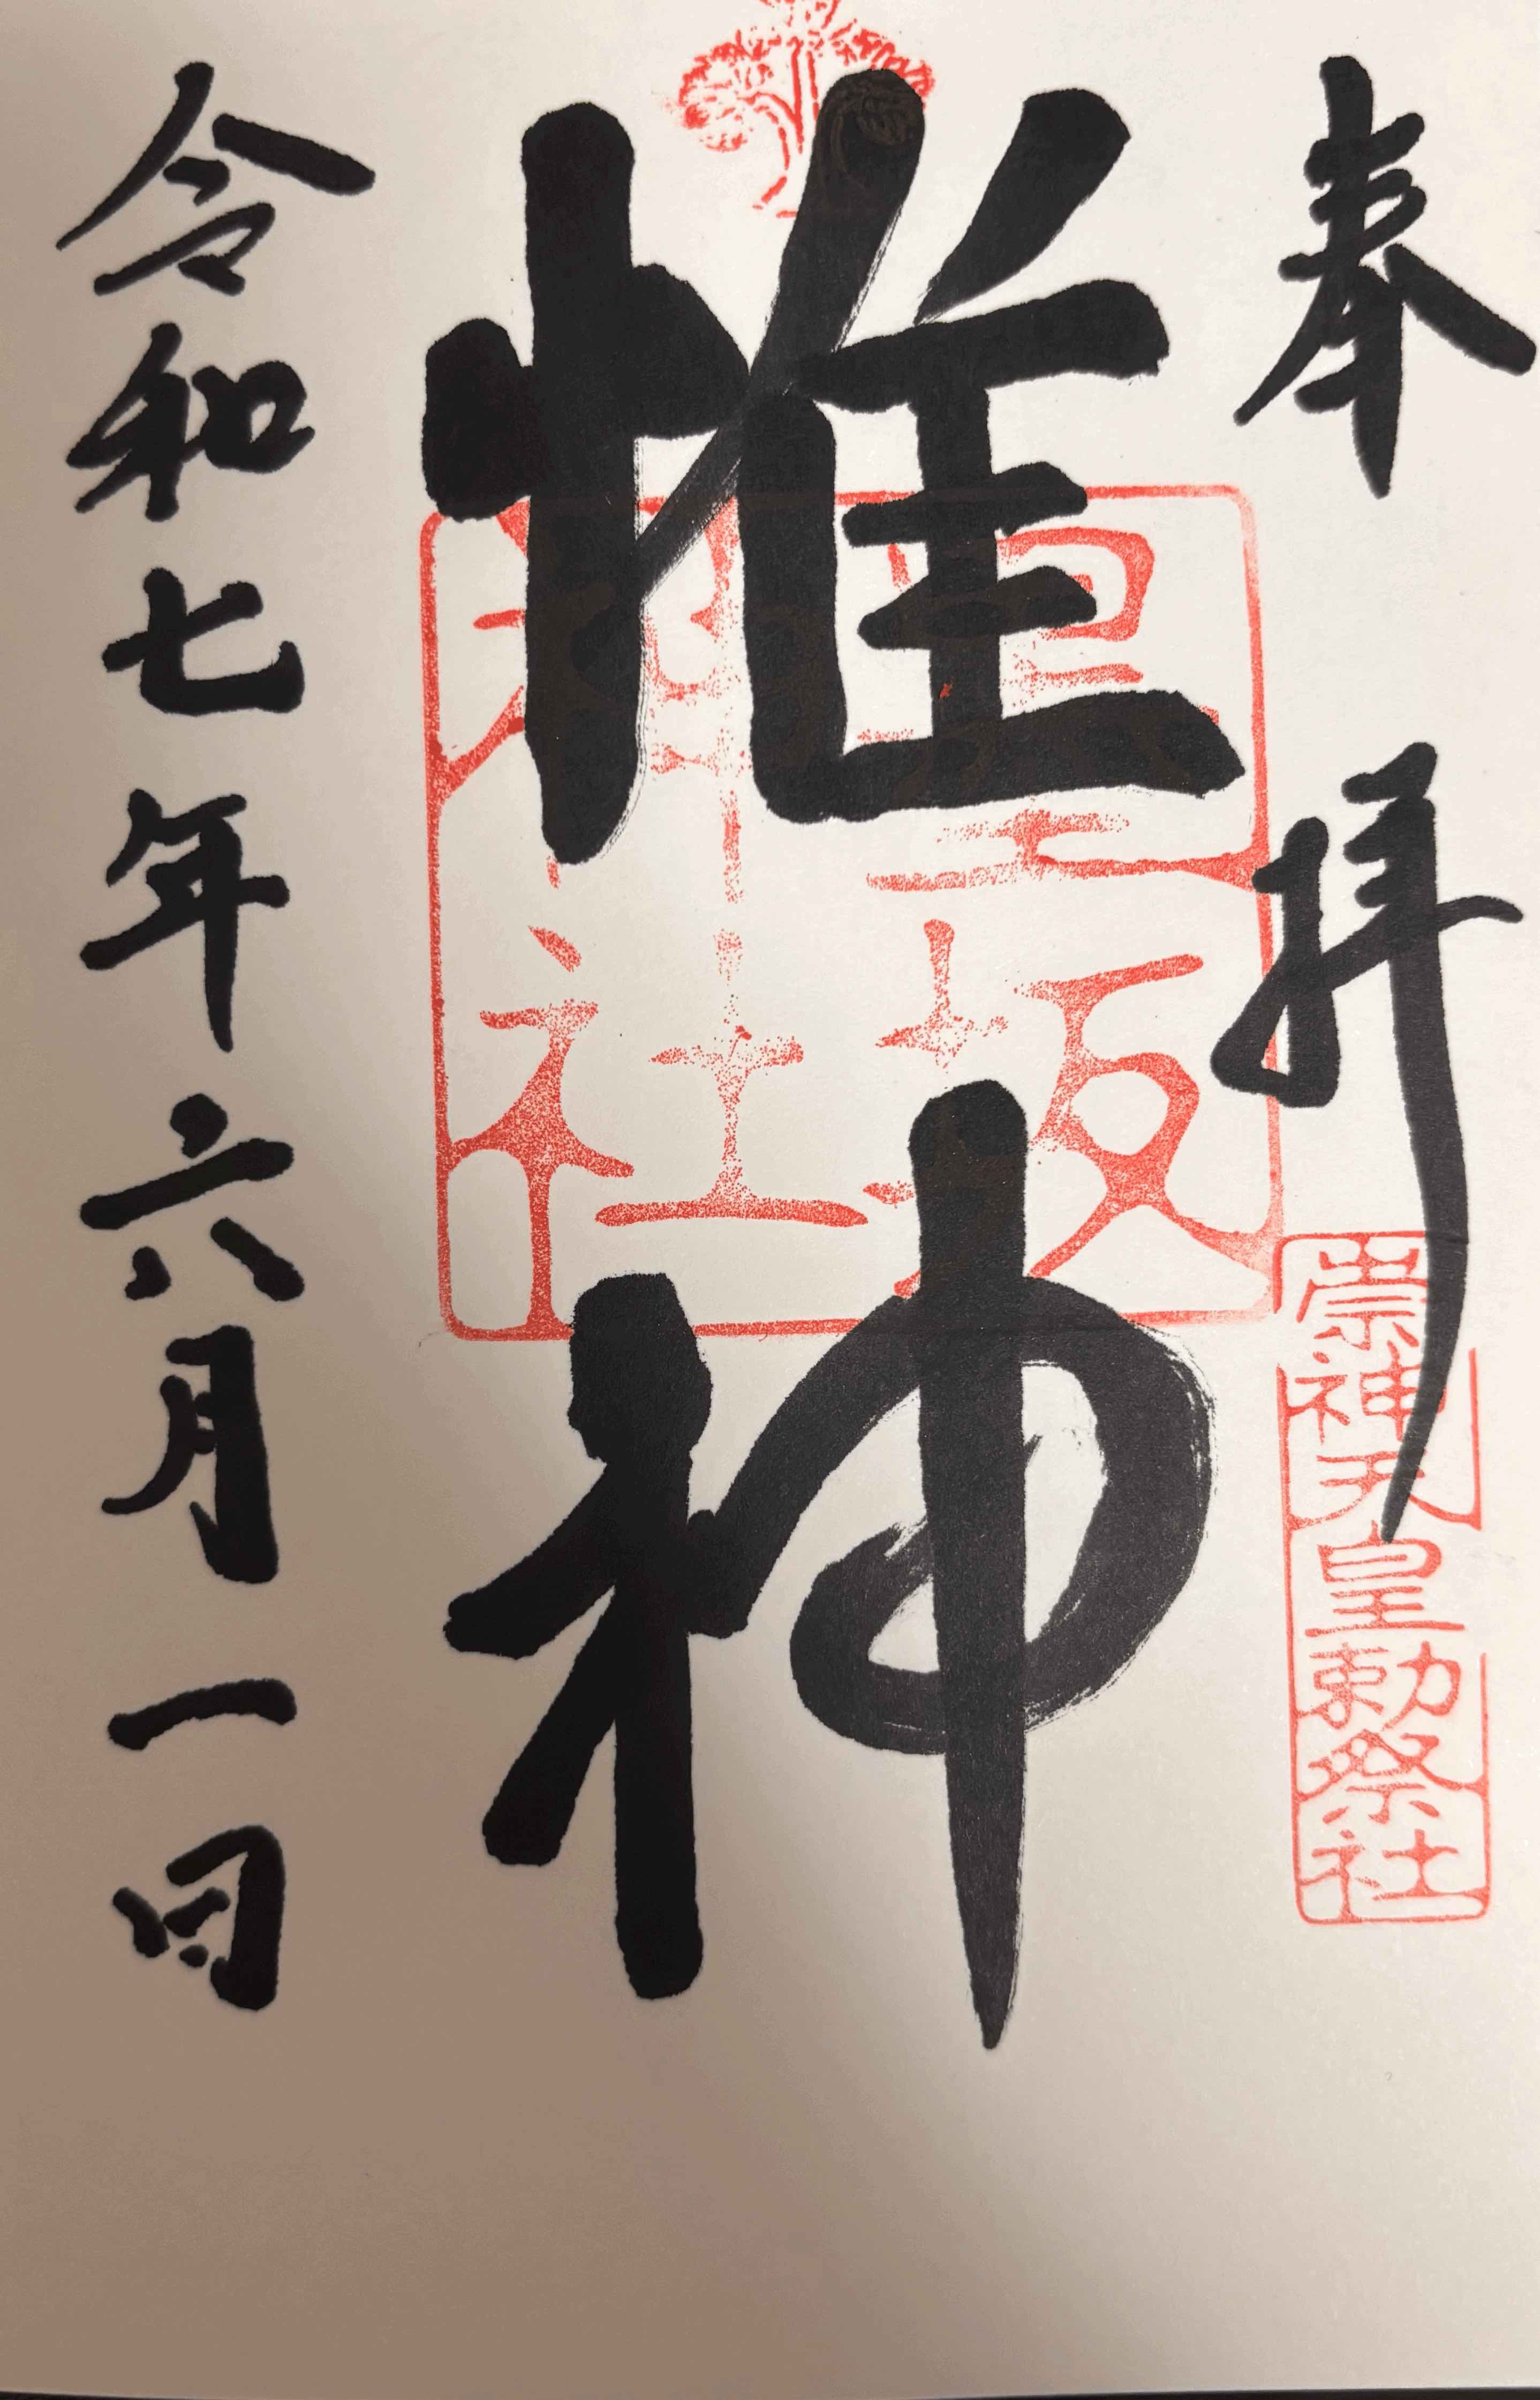 奉拝
崇神天皇勅祭社
惟神
墨坂
神社
令和七年六月一日